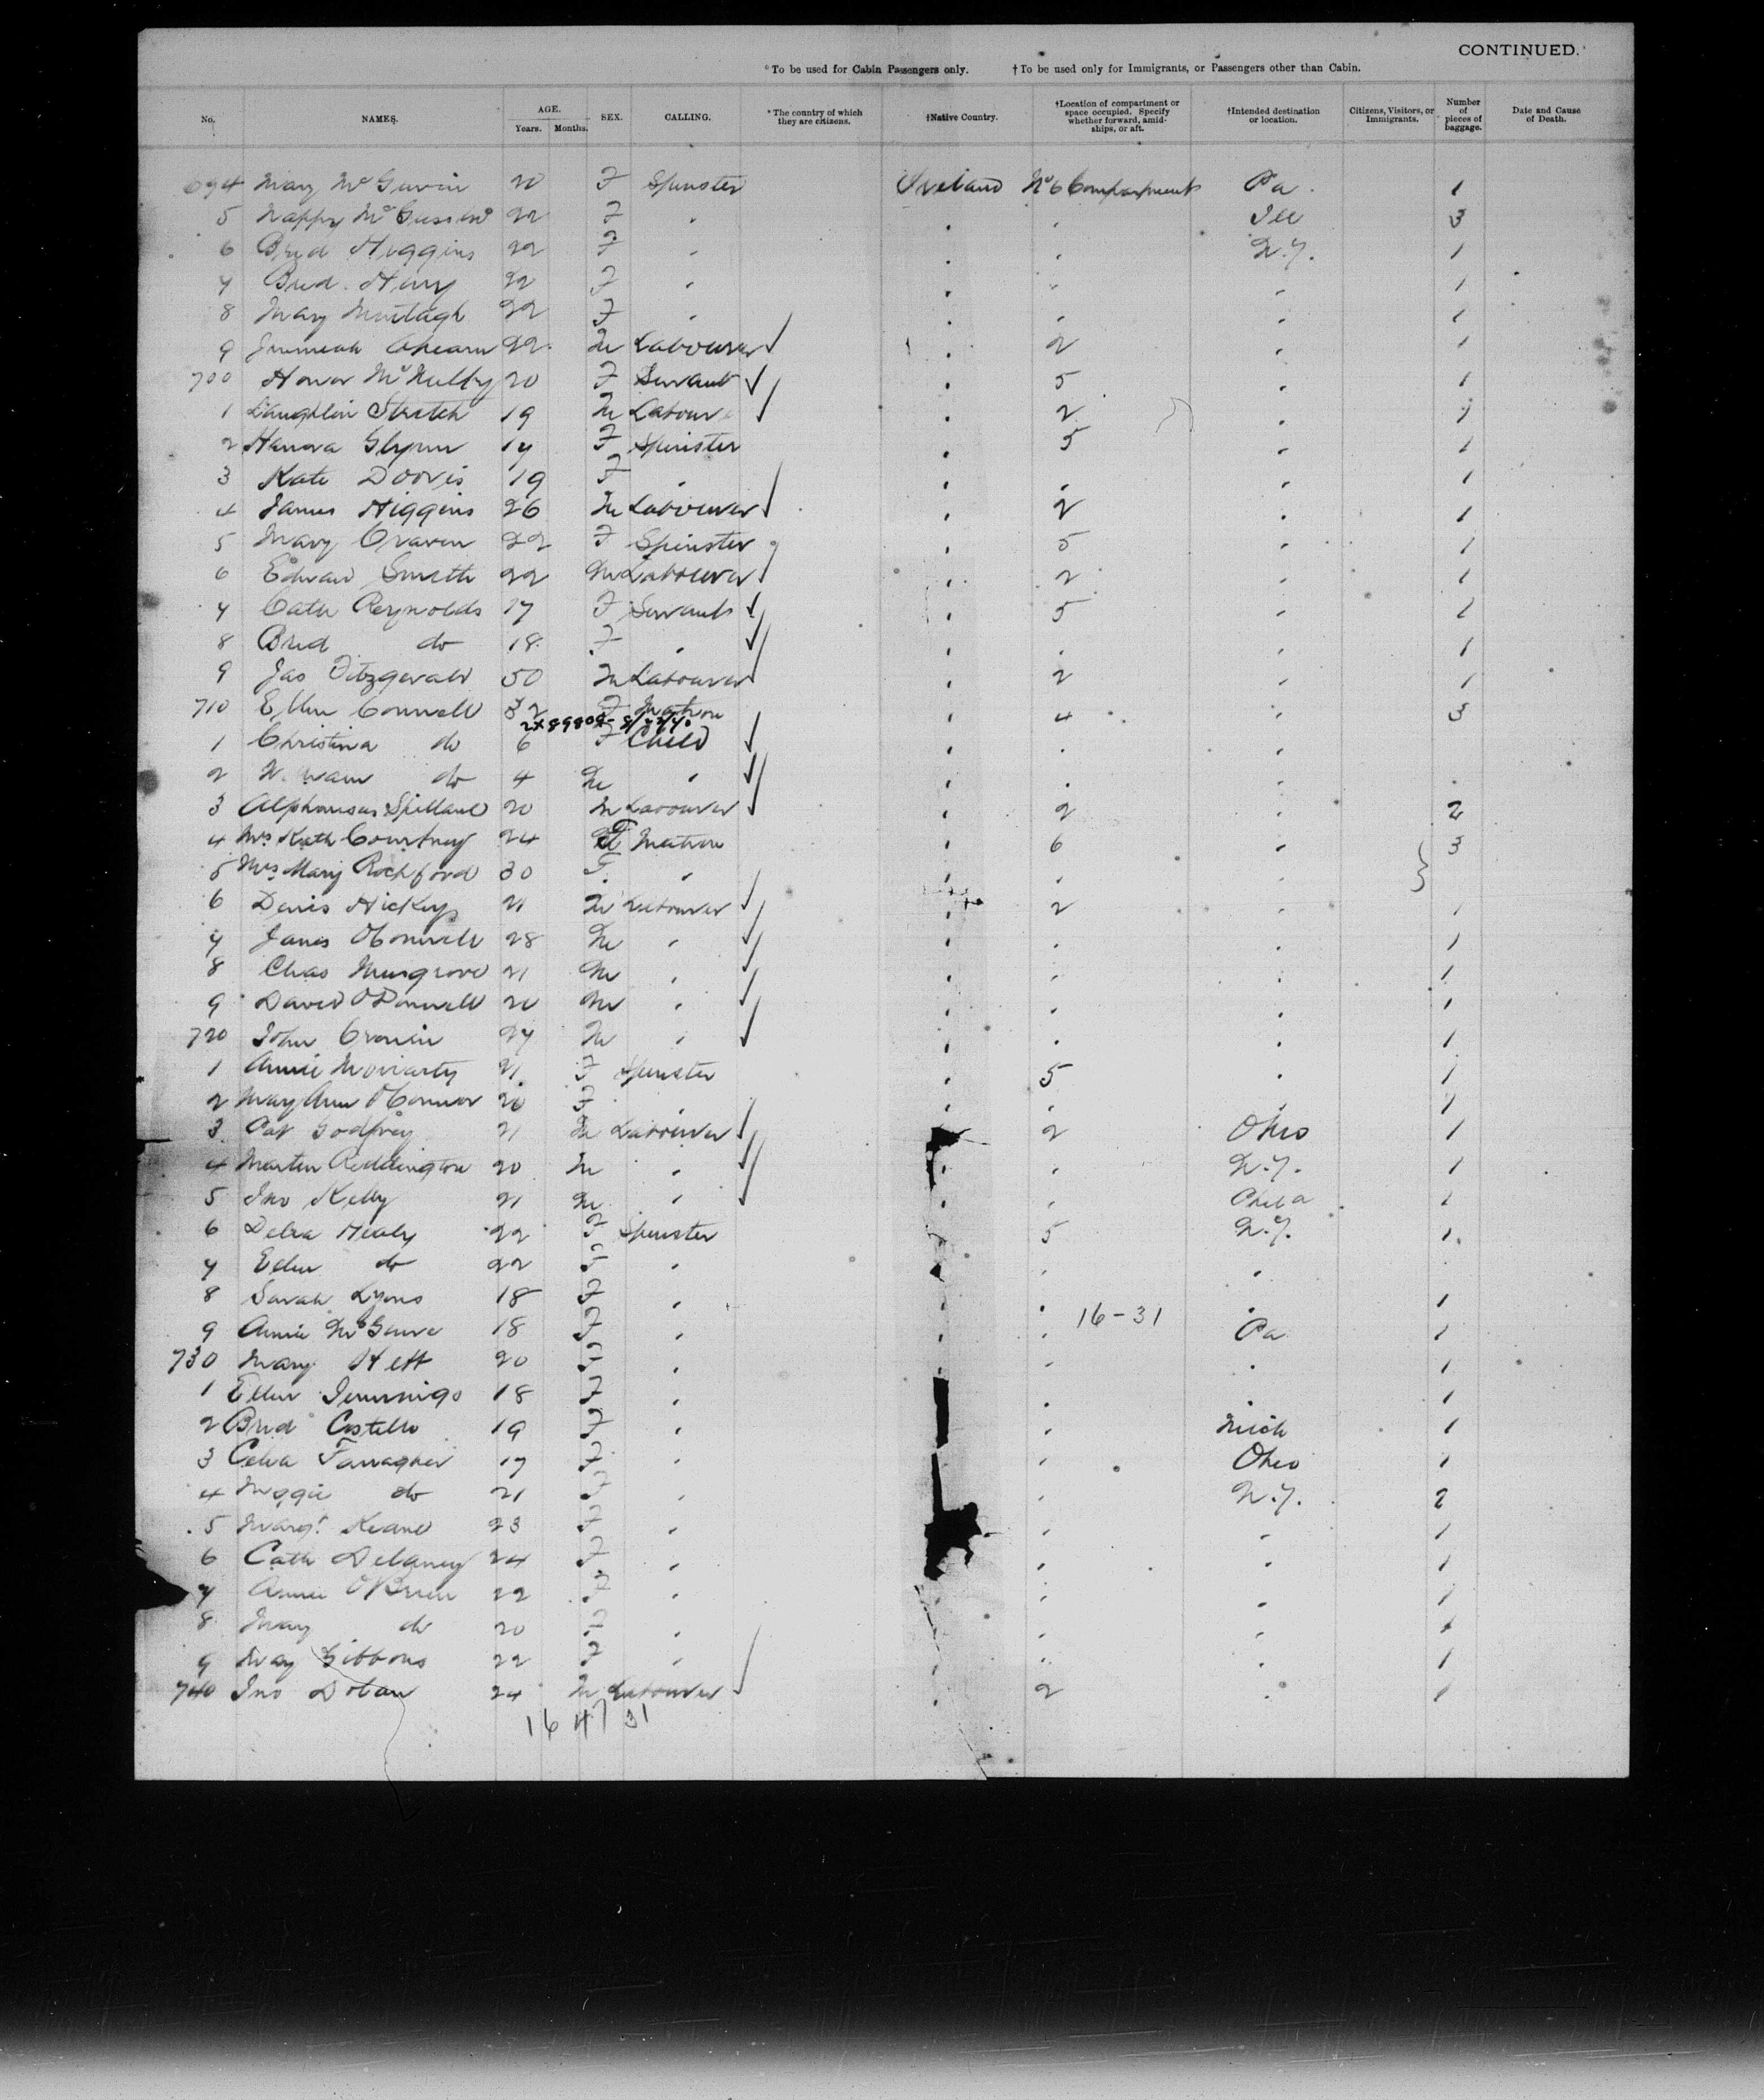 CONTINUED.
*To be used for Cabin Passengers only. †To be used only for Immigrants, or Passengers other than Cabin.
No. NAMES. AGE. Years. Months. SEX. CALLING. *The country of which they are citizens. †Native Country. †Location of compartment or space occupied. Specify whether forward, amid-ships, or aft. †Intended destination or location. Citizens, Visitors, or Immigrants. Number of pieces of baggage. Date and Cause of Death.
694 Mary 20 F Spinster Ireland No 6 Compartment Pa. 1
5 22 F " " " Ill 3
6 Brid Higgins 22 F " " " N.Y. 1
7 Brid. 22 F " " " " 1
8 Mary Murtagh 22 F " " " " 1
9 Jeremiah Ahearn 22 M Labourer " 2 " 1
700 Honor McNulty 20 F Servant " 5 " 1
1 Laughlin 19 M Labour " 2 " 1
2 Hanora Glynn 17 F Spinster " 5 " 1
3 Kate Doovis 19 F " " " " 1
4 James Higgins 26 M Labourer " 2 " 1
5 Mary Craven 22 F Spinster " 5 " 1
6 Edward Smith 22 M Labourer " 2 " 1
7 Cath Reynolds 17 F Servant " 5 " 1
8 Brid do 18 F " " " " 1
9 Jas Fitzgerald 50 M Labourer " 2 " 1
710 Ellen Connell 32 F Matron " 4 " 3
1 Christina do 6 F Child " " "
2 do 4 M " " " "
3 Alphonsus Spillane 20 M Labourer " 2 " 2
4 Mrs Kath Courtney 24 F Matron " 6 " 3
5 Mrs Mary Rochford 30 F " " " "
6 Denis Hickey 21 M Labourer " 2 " 1
7 James O'Connell 28 M " " " " 1
8 Chas Musgrove 21 M " " " " 1
9 David O'Donnell 20 M " " " " 1
720 John Cronin 27 M " " " " 1
1 Annie Moriarty 21 F Spinster " 5 " 1
2 Mary Ann O'Connor 20 F " " " " 1
3 Pat Godfrey 21 M Labourer 2 Ohio 1
4 Martin Reddington 20 M " " " N.Y. 1
5 Jno Kelly 21 M " " " Phila 1
6 Delia Healy 22 F Spinster 5 N.Y. 1
7 Ellen do 22 F " " "
8 Sarah Lyons 18 F " " " " 1
16-31
9 Annie 18 F " " " Pa 1
730 Mary 20 F " " " 1
1 Ellen Jennings 18 F " " " 1
2 Brid Costello 19 F " " Mich 1
3 Celia Farragher 17 F " " Ohio 1
4 Maggie do 21 F " " N.Y. 2
5 Margt Keane 23 F " " " 1
6 Cath Delaney 24 F " " " 1
7 Annie O'Brien 22 F " " " 1
8 Mary do 20 F " " " 1
9 May Gibbons 22 F " " " " 1
740 Jno Dolan 24 M Labourer " 2 " 1
16 47 31